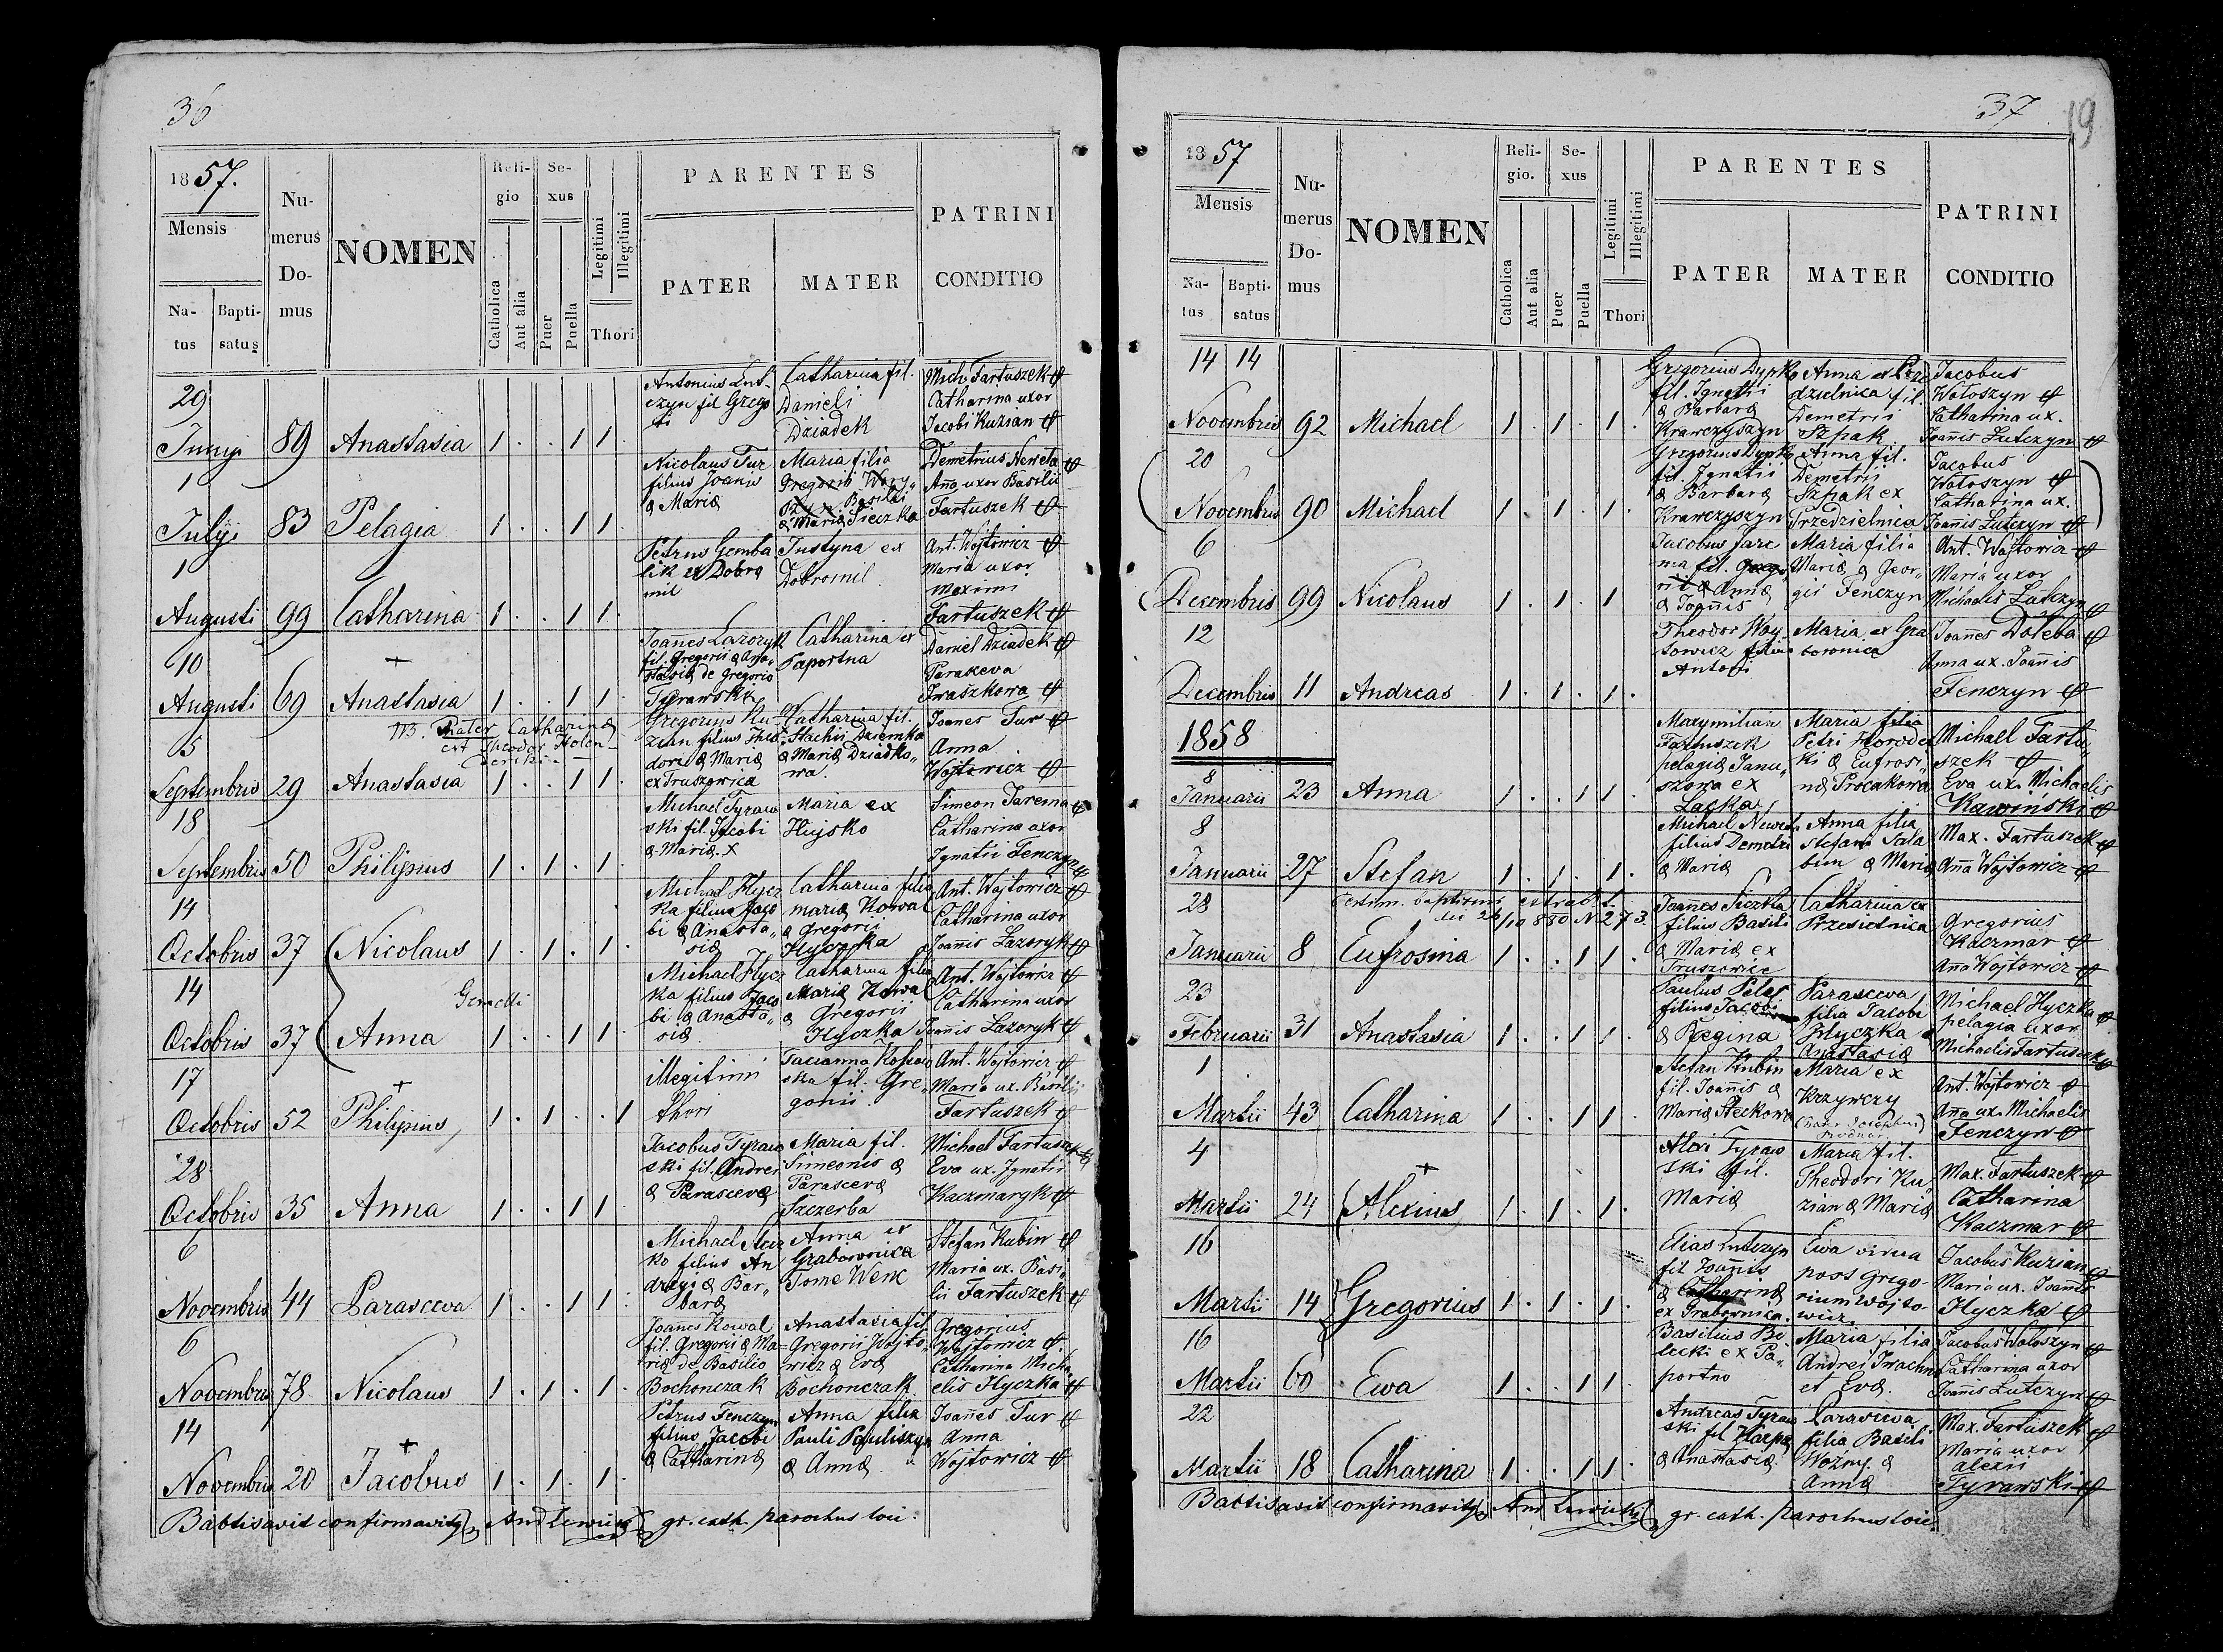 36
1857.
Mensis
Na-
tus
Bapti-
satus
Nu-
merus
Do-
mus
NOMEN
Reli-
gio
Catholica
Aut alia
Se-
xus
Puer
Puella
Legitimi
Illegitimi
Thori
PARENTES
PATER
MATER
PATRINI
CONDITIO
29
Junyi 89 Anastasia 1 . . 1 1 .
Antonius Lut-
czyn fil Grego
rii
Catharina fil.
Danieli
Dziadek
Mich. Fartuszek
Catharina uxor
Jacobi Kuzian
1
Julyi 83 Pelagia 1 . . 1 1
Nicolaus Tur
filius Joanis
& Maria
Maria filia
Gregorii Wory„
szyn. Basilii
& Maria Sieczka
Demetrius Neweta
Anna uxor Basilii
Fartuszek
1
Augusti 99 Catharina 1 . . 1 1 .
Petrus Gemba
lik ex Dobro
mil
Justyna ex
Dobromil
Ant. Wojtowicz
Maria uxor
Maximi
Fartuszek
10
Augusti 69 Anastasia 1 . . 1 1 .
Joanes Lazoryk
fil. Gregorii & Ana„
stasia de Gregorio
Tyrawski
Catharina ex
Paportna
Daniel Dziadek
Paraskeva
Iwaszkowa
NB. Pater Catharina
est Theodor Holen
derski
15
Septembris 29 Anastasia 1 . . 1 1 .
Gregorius Ku-
zian filius Theo-
dori & Maria
ex Truszowice
Catharina fil.
Stachii Dziemka
& Maria Dziadko„
wa.
Joanes Tur
Anna
Wojtowicz
18
Septembris 50 Philipus 1 . 1 . 1 .
Michael Tyraw
ski fil. Jacobi
& Maria. X
Maria ex
Hujsko
Simeon Jarema
Catharina uxor
Ignatii Fenczyn
14
Octobris 37 Nicolaus 1 . 1 . 1 .
Michael Hycz
ka filius Jaco
bi & Anasta„
sia
Catharina filia
Maria Kowal
& Gregorii
Hyczka
Ant. Wojtowicz
Catharina uxor
Joannis Lazoryk
14
Gemelli
Octobris 37 Anna 1 . . 1 1 .
Michael Hycz
ka filius Jaco
bi & Anasta„
sia.
Catharina filia
Maria Kowal
& Gregorii
Hyczka
Ant. Wojtowicz
Catharina uxor
Joannis Lazoryk
17
Octobris 52 Philipus 1 . 1 . . 1
illegitimi
thori
Tacianna
ska fil. Gre„
gorii
Ant. Wojtowicz
Maria ux. Basilii
Fartuszek
28
Octobris 35 Anna 1 . . 1 1
Jacobus Tyraw
ski fil. Andrei
& Parasceva
Maria fil.
Simeonis &
Parasceva
Szczerba
Michael Fartuszek
Eva ux. Ignatii
Kaczmaryk
6
Novembris 44 Parasceva 1 . . 1 1 .
Michael
ko filius An
dreji & Bar„
bara
Anna ex
Grabownica
Tome Wenc
Stefan Kubin
Maria ux. Basi„
lii Fartuszek
6
Novembris 78 Nicolaus 1 . 1 . 1 .
Joanes Kowal
fil. Gregorii & Ma-
ria de Basilio
Bochonczak
Anastasia fil
Gregorii Wojto„
wicz & Eva
Bochonczak
Gregorius
Wojtowicz
Catharina Micha„
elis Hyczka
14
Novembris 20 Jacobus 1 . 1 . 1 .
Petrus Fenczyn
filius Jacobi
& Catharina
Anna filia
Pauli Pauliszyn
& Anna
Joannes Tur
Anna
Wojtowicz
Babtisavit confirmavitq And Lewicki gr. cath parochus loci.
37
19
1857
Mensis
Na-
tus
Bapti-
satus
Nu-
merus
Do-
mus
NOMEN
Reli-
gio.
Catholica
Aut alia
Se-
xus
Puer
Puella
Legitimi
Illegitimi
Thori
PARENTES
PATER
MATER
PATRINI
CONDITIO
14 14
Novembris 92 Michael 1 . 1 . 1 .
Gregorius Dypko
fil. Ignatii
& Barbara
Krawczyszyn
Anna ex Prze
dzielnica fil.
Demetrii
Szpak
Jacobus
Wotoszyn
Catharina ux.
Joannis Lutczyn
20
Novembris 90 Michael 1 . 1 . 1 .
Gregorius Dypko
fil. Ignatii
& Barbara
Krawczyszyn
Anna fil.
Demetrii
Szpak ex
Przedzielnica
Jacobus
Wotoszyn
Catharina ux.
Joannis Lutczyn
6
Decembris 99 Nicolaus 1 . 1 . 1
Jacobus Jare
ma fil. Grego„
rii & Anna
& Joannis
Maria filia
Maria & Geor„
gii Fenczyn
Ant. Wojtowicz
Maria uxor
Michaelis Lutczyn
12
Decembris 11 Andreas 1 . 1 . 1 .
Theodor Woy
towicz filius
Antoni
Maria ex Gra
bownica
Joannes Doleba
Anna ux. Joannis
Fenczyn
1858
8
Januarii 23 Anna 1 . . 1 1 .
Maxymilian
Fartuszek
pelagia Janu„
szowa ex
Lacka
Maria filia
Petri Horodec
ki & Eufrosi„
na Procakowa
Michael Fartu
szek
Eva ux. Michaelis
Kawinski
8
Januarii 27 Stefan 1 . 1 . 1 .
Michael Neweta
filius Demetri
& Maria
Anna filia
Stefani Sala
bun & Maria
Max. Fartuszek
Anna Wojtowicz
28
Testim. baptismi extradt.
die 26/10 850 N 273.
Januarii 8 Eufrosina 1 . . 1 1 .
Joannes Sieczka
filius Basili
& Maria ex
Truszowice
Catharina ex
Przesielnica
Gregorius
Kaczmar
Anna Wojtowicz
23
Februarii 31 Anastasia 1 . . 1 1 .
Paulus Pelef
filius Jacobi
& Regina
Parasceva
filia Jacobi
Hyczka &
Anastasia
Michael Hyczka
pelagia uxor
Michaelis Fartuszek
1
Martii 43 Catharina 1 . . 1 1 .
Stefan Kubin
fil. Joannis &
Maria Steckowa
Maria ex
Krzywczy
Ant. Wojtowicz
Anna ux. Michaelis
Fenczyn
4
Martii 24 Alexius 1 . 1 . 1 .
Alexi Tyraw
ski fil.
Maria
Maria fil.
Theodori Ku„
zian & Maria
Max. Fartuszek
Catharina
Kaczmar
16
Martii 14 Gregorius 1 . 1 . 1 .
Elias Lutczyn
fil Joannis
& Catharina
ex Grabownica.
Ewa vidua
post Grego-
rium Wojto-
wicz.
Jacobus Kuzian
Maria ux. Joannis
Hyczka
16
Martii 60 Ewa 1 . . 1 1 .
Basilius Bi
lecki ex Pa„
portno
Maria filia
Andrei Iwachn
et Eva.
Jacobus Wotoszyn
Catharina uxor
Joannis Lutczyn
22
Martii 18 Catharina 1 . . 1 1 .
Andreas Tyraw
ski fil
& Anastasia
Parasceva
filia Basili
Wozny. &
Anna
Max. Fartuszek
Maria uxor
Alexii
Tyrawski
Babtisavit confirmavitq And Lewicki gr. cath. parochus loci.